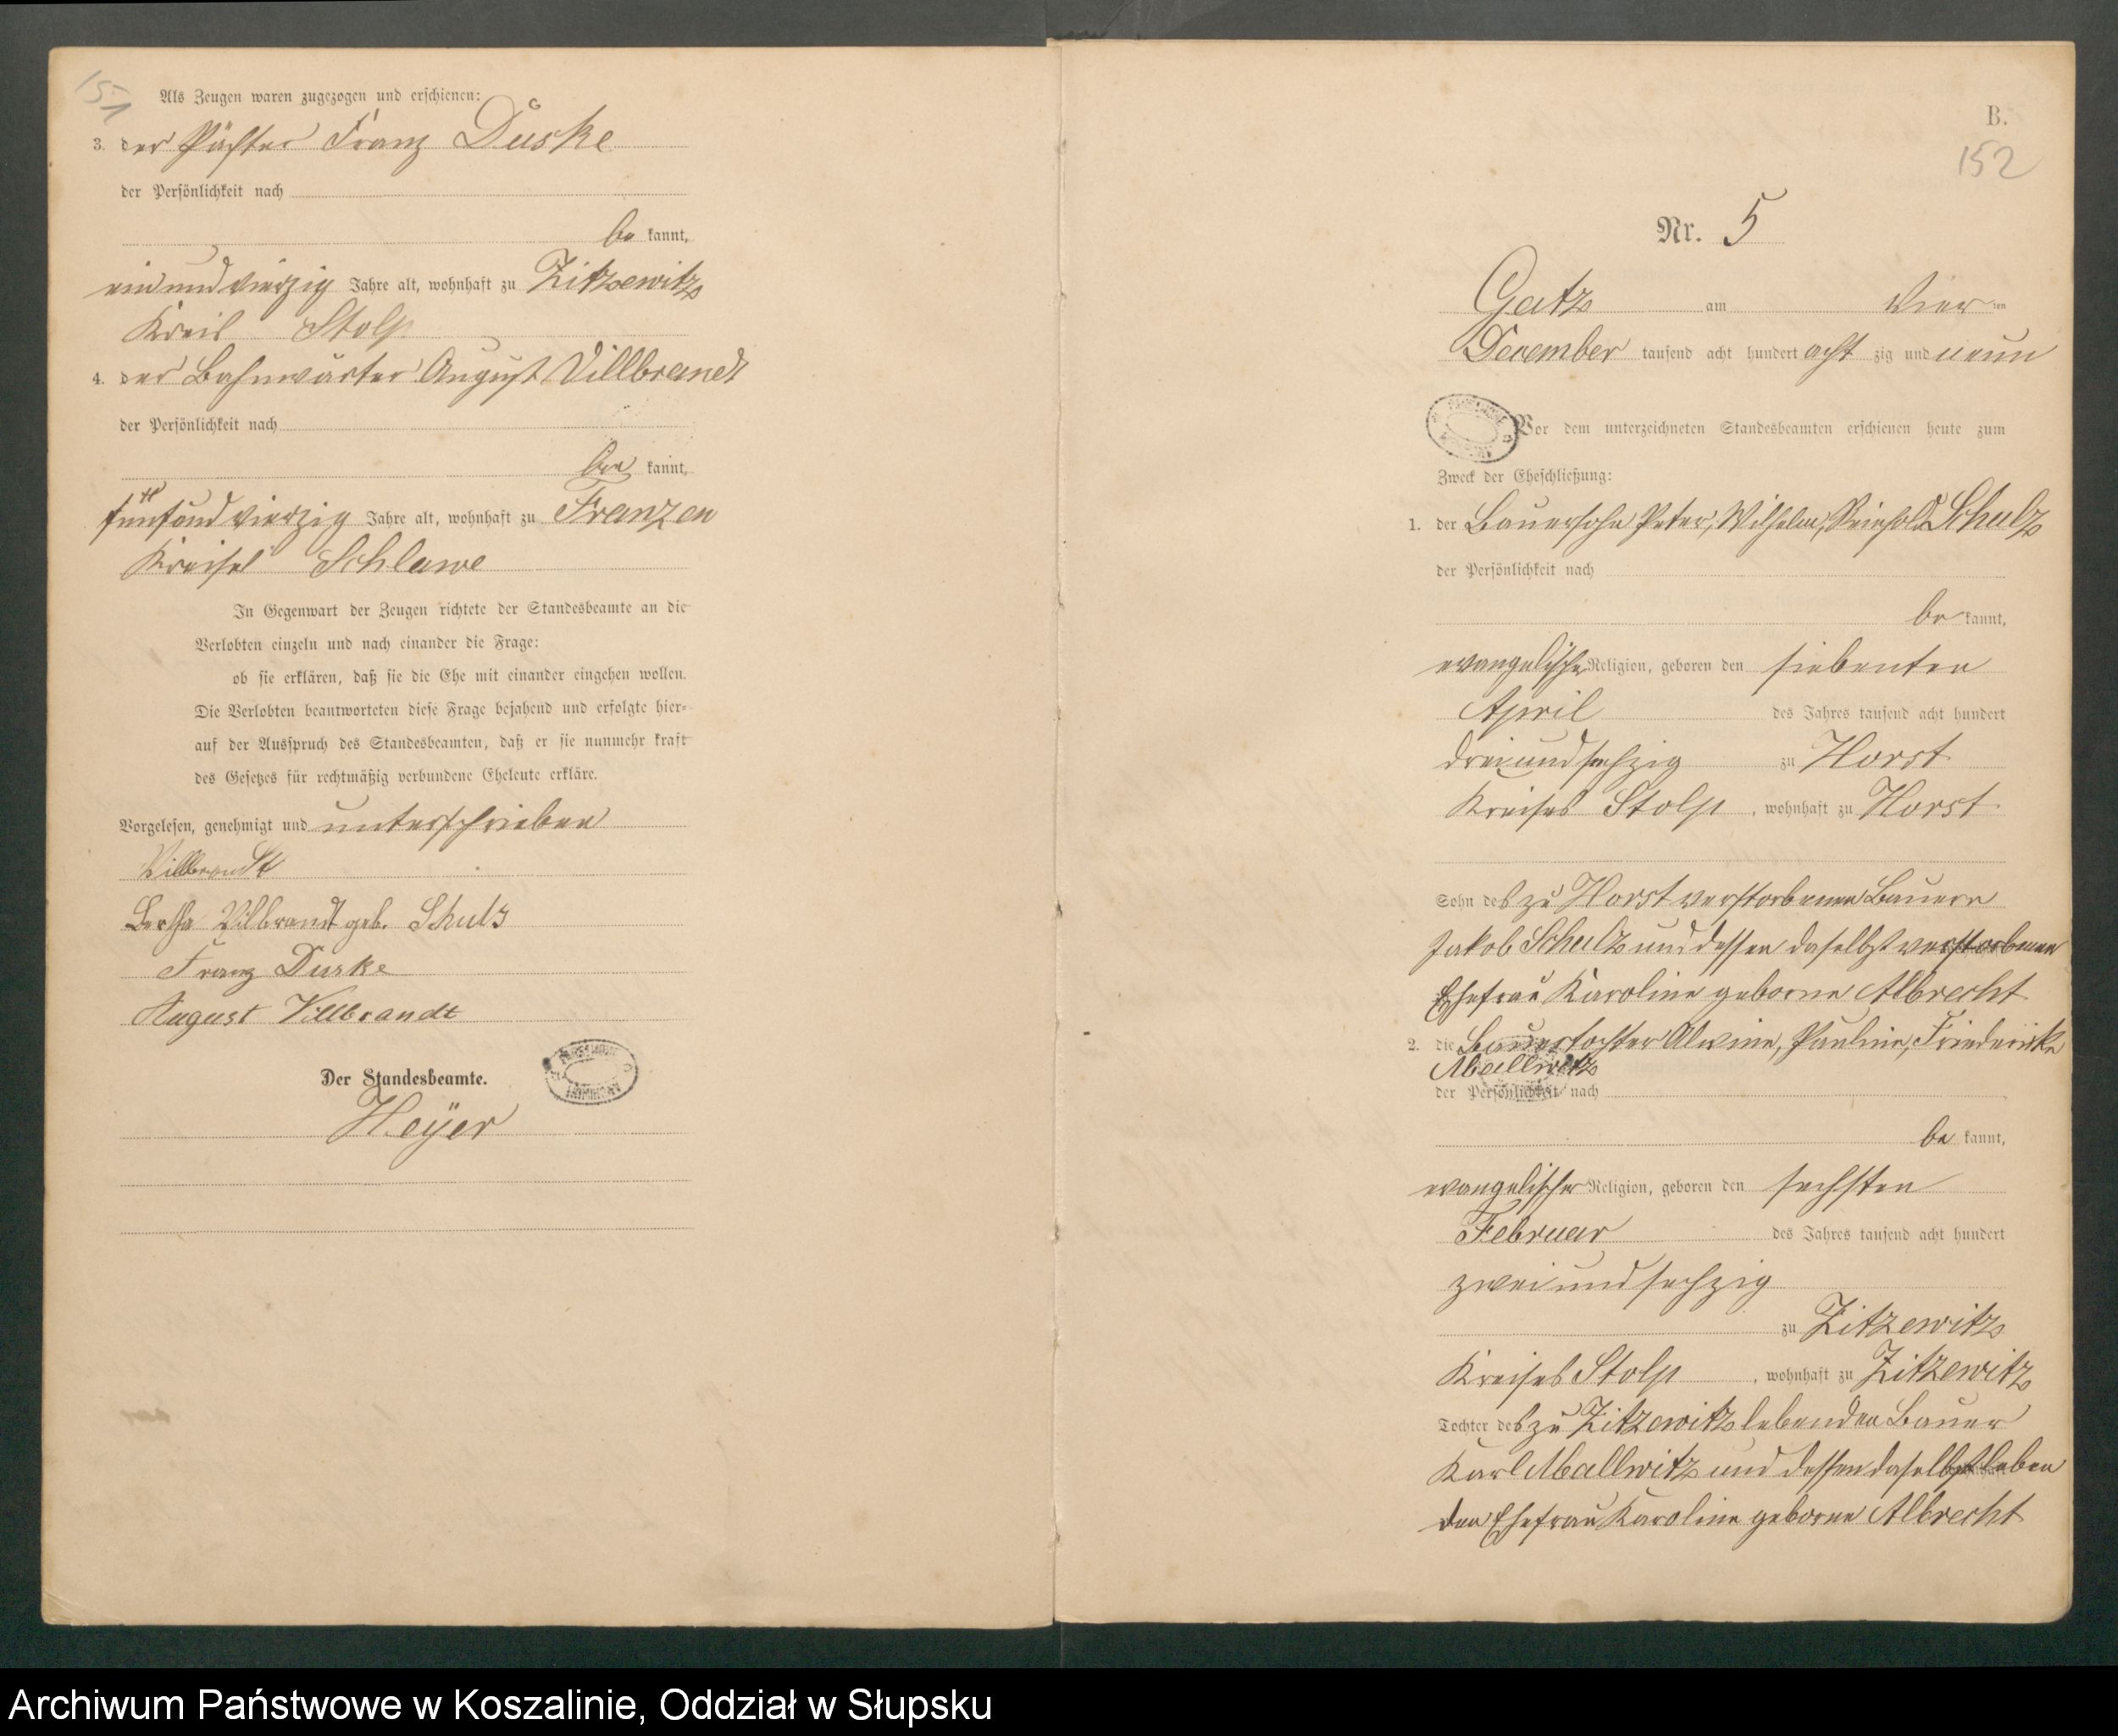 151
Als Zeugen waren zugezogen und erschienen:
3. der Pächter Franz Duske
der Persönlichkeit nach
be kannt,
ein und vierzig Jahre alt, wohnhaft zu Zitzewitz
Kreis Stolp
4. der Bahnwärter August Villbrandt
der Persönlichkeit nach
be kannt,
fünf und vierzig Jahre alt, wohnhaft zu Franzen
Kreises Schlawe
In Gegenwart der Zeugen richtete der Standesbeamte an die
Verlobten einzeln und nach einander die Frage:
ob sie erklären, daß sie die Ehe mit einander eingehen wollen.
Die Verlobten beantworteten diese Frage bejahend und erfolgte hier-
auf der Ausspruch des Standesbeamten, daß er sie nunmehr kraft
des Gesetzes für rechtmäßig verbundene Eheleute erkläre.
Vorgelesen, genehmigt und unterschrieben
Villbrandt
Bertha Vilbrandt geb. Schulz
Franz Duske
August Villbrandt
Der Standesbeamte.
Heÿer
B.
152
Nr. 5
Gatz am Vier ten
December tausend acht hundert acht zig und neun
Vor dem unterzeichneten Standesbeamten erschienen heute zum
Zweck der Eheschließung:
1. der Bauersohn Peter, Wilhelm, Reinhold Schulz
der Persönlichkeit nach
be kannt,
evangelischer Religion, geboren den siebenten
April des Jahres tausend acht hundert
drei und sechzig zu Horst
Kreises Stolp, wohnhaft zu Horst
Sohn des zu Horst verstorbenen Bauern
Jakob Schulz und dessen daselbst verstorbenen
Ehefrau Karoline geborne Albrecht
2. die Bauertochter Alwine, Pauline, Friederike
Mallwitz
der Persönlichkeit nach
be kannt,
evangelischer Religion, geboren den sechsten
Februar des Jahres tausend acht hundert
zwei und sechzig
zu Zitzewitz
Kreises Stolp, wohnhaft zu Zitzewitz
Tochter des zu Zitzewitz lebenden Bauer
Karl Mallwitz und dessen daselbst leben
den Ehefrau Karoline geborne Albrecht
Archiwum Państwowe w Koszalinie, Oddział w Słupsku